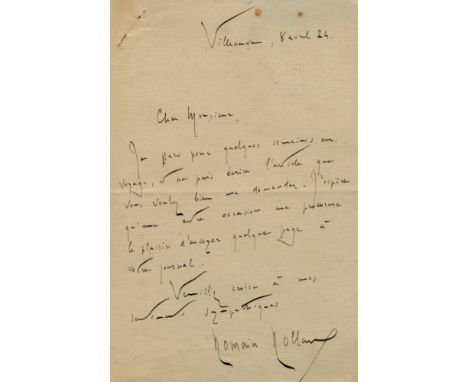 Villeneuve, 8 avril 24.
Cher Monsieur
Je pars pour quelques semaines en
voyage, et ne puis écrire l'article que
vous voulez bien me demander. J'espère
qu'une autre occasion me procurera
le plaisir d'envoyer quelque page à
votre journal.
Veuillez croire à mes
sentiments sympathiques
Romain Rolland